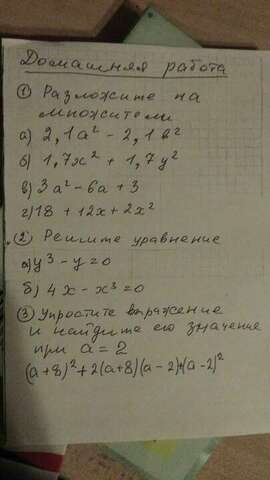 Домашняя работа
① Разложите на
множители
а) 2,1a² - 2,1b²
б) 1,7x² + 1,7y²
в) 3a² - 6a + 3
г) 18 + 12x + 2x²
② Решите уравнение
а) y³ - y = 0
б) 4x - x³ = 0
③ Упростите выражение
и найдите его значение
при a = 2
(a+8)² + 2(a+8)(a-2)+(a-2)²